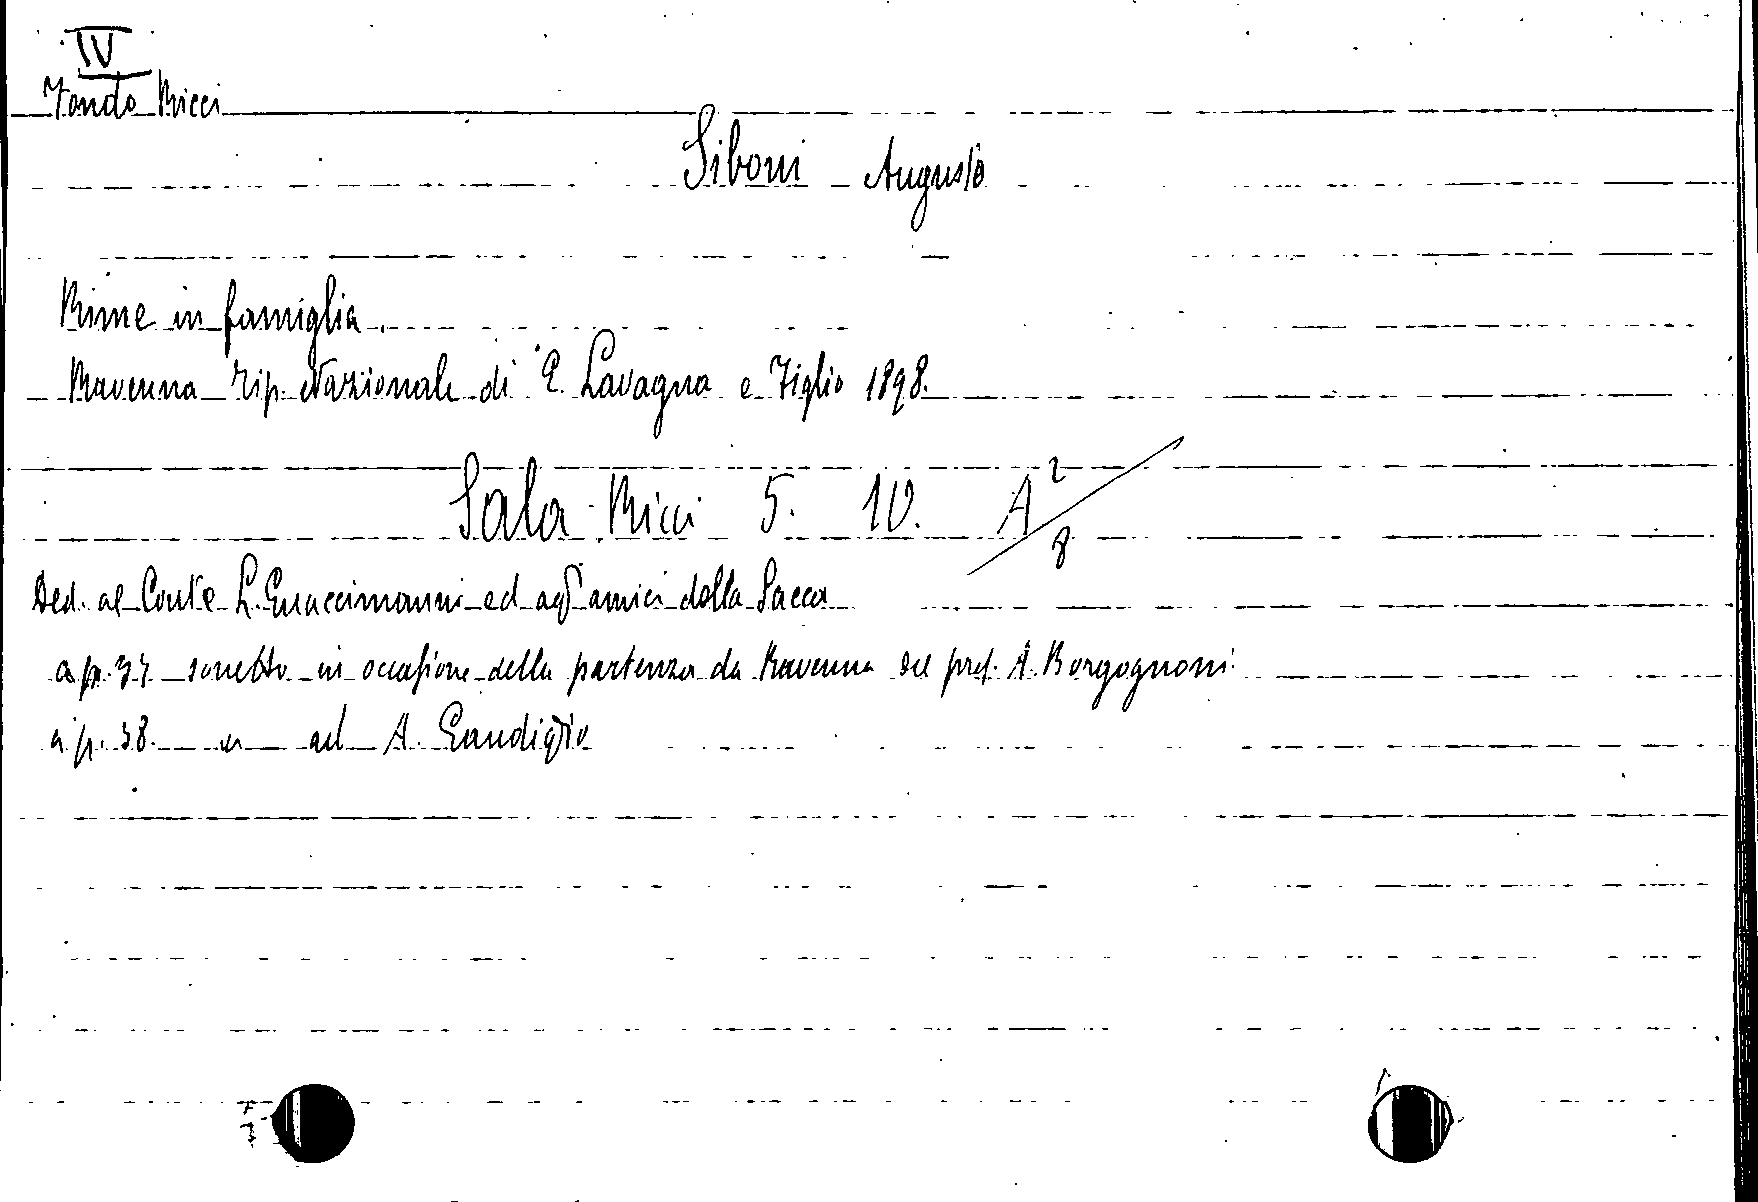 IV
Fondo Ricci
Siboni Augusto
Rime in famiglia.
Ravenna Tip. Nazionale di E. Lavagna e Figlio 1898.
Sala Ricci 5. 10. A 2/8
Ded. al Conte L. Guaccimanni ed agli amici della Sacca
a p. 37 sonetto in occasione della partenza da Ravenna del prof. A. Borgognoni
a p. 38. ad A. Gandiglio